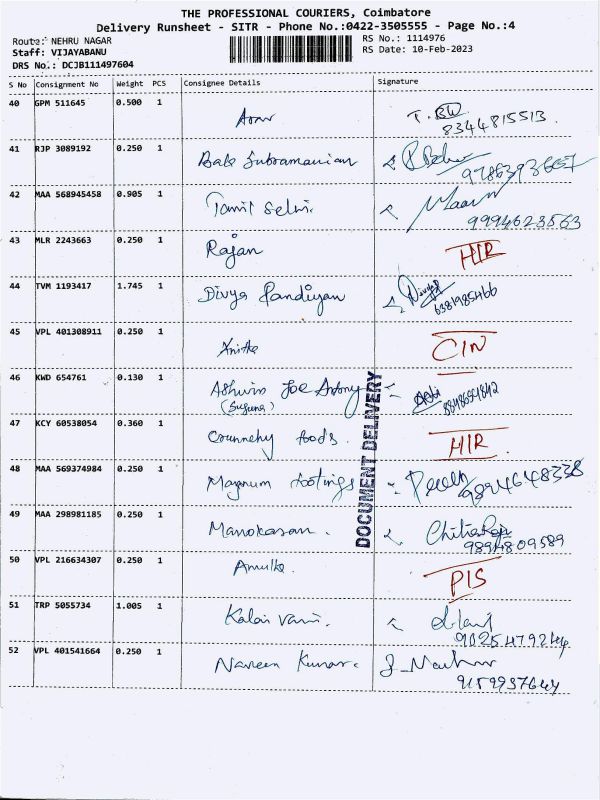 THE PROFESSIONAL COURIERS, Coimbatore
Delivery Runsheet - SITR - Phone No.:0422-3505555 - Page No.:4
Route: NEHRU NAGAR RS No.: 1114976
Staff: VIJAYABANU RS Date: 10-Feb-2023
DRS No.: DCJB111497604
S No Consignment No Weight PCS Consignee Details Signature
40 GPM 511645 0.500 1
8344815513
41 RJP 3089192 0.250 1 Bala Subramanian
42 MAA 568945458 0.905 1 Tamil Selvi.
9994623563
43 MLR 2243663 0.250 1 Rajan HIR
44 TVM 1193417 1.745 1 Divya Pandiyan Divya
6381985466
45 VPL 401308911 0.250 1 Anitha CIN
46 KWD 654761 0.130 1 Ashwin Joe Antony
(Suguna)
47 KCY 60538054 0.360 1 foods. HIR
48 MAA 569374984 0.250 1 Magnum footings
9894648338
49 MAA 298981185 0.250 1 Manokaran.
9894809589
50 VPL 216634307 0.250 1 Amutha PIS
51 TRP 5055734 1.005 1 Kalai vani.
52 VPL 401541664 0.250 1 Naveen Kumar.
DOCUMENT DELIVERY